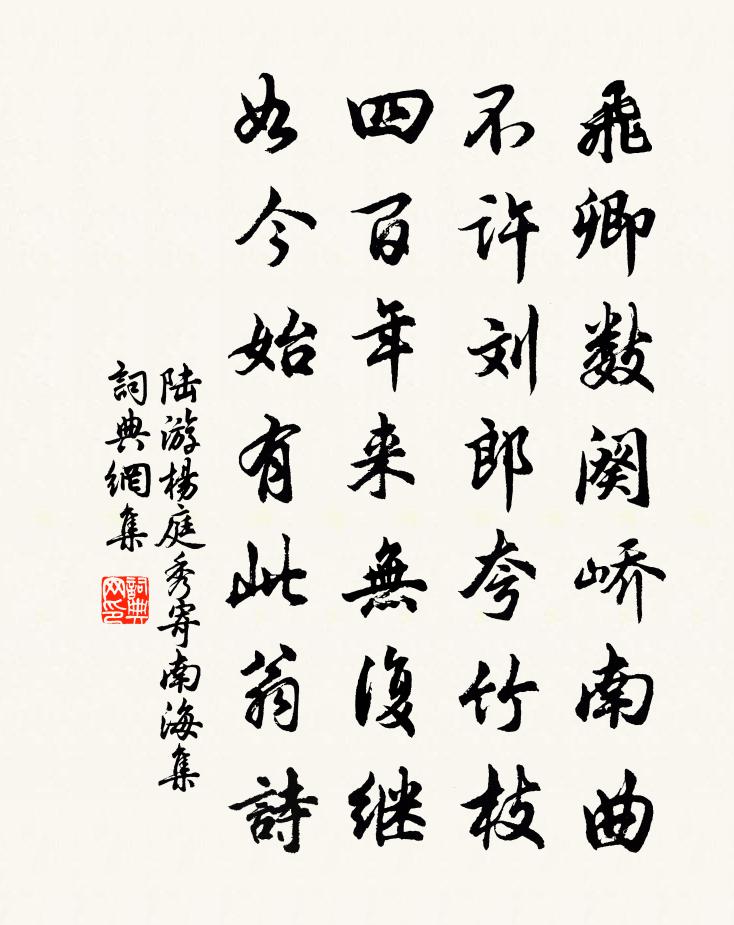 飛卿数阕峤南曲
不许刘郎夸竹枝
四百年来無復继
如今始有此翁詩
陆游楊庭秀寄南海集
詞典網集
詞典网印